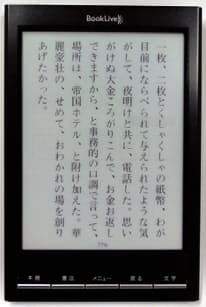 BookLive!
一枚、二枚とくしゃくしゃの紙幣、わが
目前にならべられて与えられたような気
がして、夜明けと共に、電話した。思い
がけぬ大金ころがりこんで、お金お返し
できますから、と事務的の口調で言って、
場所は、帝国ホテル、と附け加えた。華
麗豪壮の、せめて、おわかれの場を創り
あげたかった。
776
本棚 書店 メニュー 戻る 文字